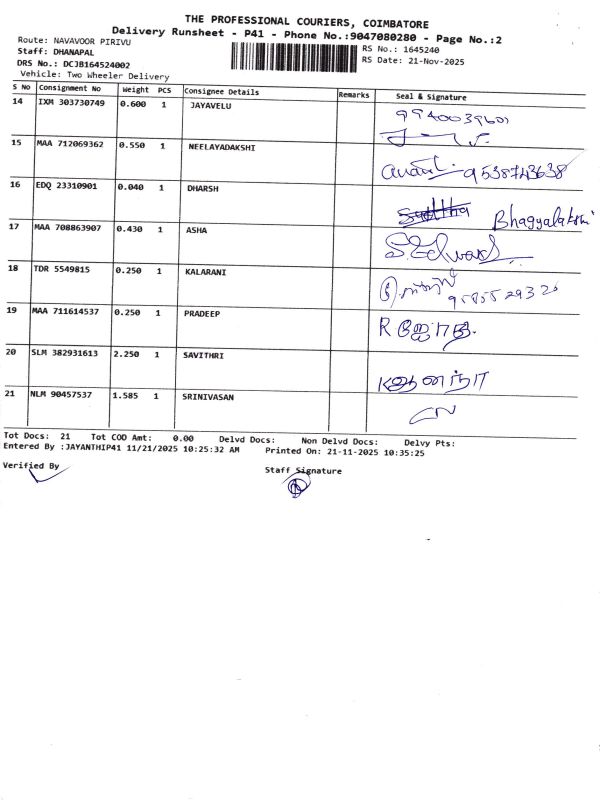 THE PROFESSIONAL COURIERS, COIMBATORE
Delivery Runsheet - P41 - Phone No.:9047080280 - Page No.:2
Route: NAVAVOOR PIRIVU
RS No.: 1645240
Staff: DHANAPAL
RS Date: 21-Nov-2025
DRS No.: DCJB164524002
Vehicle: Two Wheeler Delivery
S No Consignment No Weight PCS Consignee Details Remarks Seal & Signature
14 IXM 303730749 0.600 1 JAYAVELU
9940039601
15 MAA 712069362 0.550 1 NEELAYADAKSHI
9538743638
16 EDQ 23310901 0.040 1 DHARSH
Bhagyalakshmi
17 MAA 708863907 0.430 1 ASHA
S. Edward
18 TDR 5549815 0.250 1 KALARANI
19 MAA 711614537 0.250 1 PRADEEP
20 SLM 382931613 2.250 1 SAVITHRI
21 NLM 90457537 1.585 1 SRINIVASAN
Tot Docs: 21 Tot COD Amt: 0.00 Delvd Docs: Non Delvd Docs: Delvy Pts:
Entered By :JAYANTHIP41 11/21/2025 10:25:32 AM Printed On: 21-11-2025 10:35:25
Verified By Staff Signature